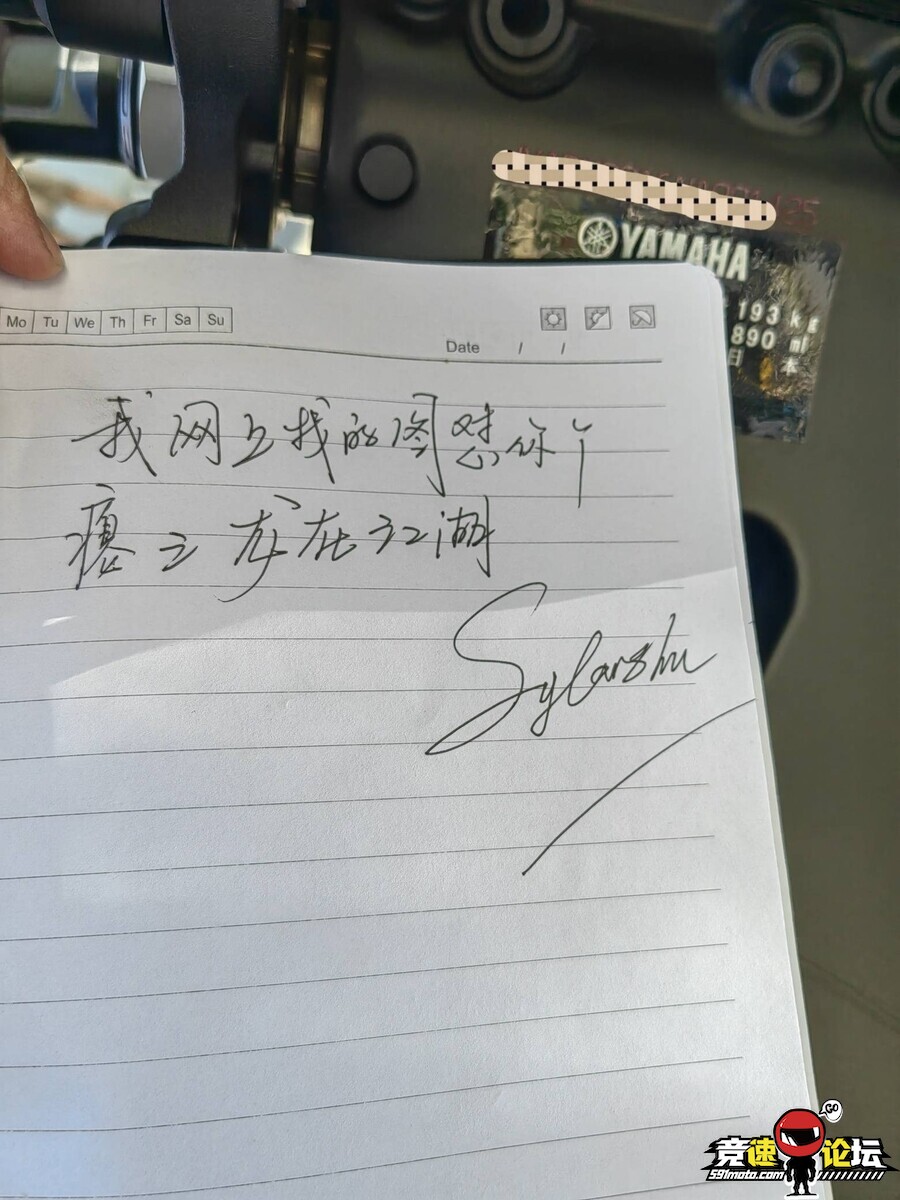 YAMAHA
193 kg
890 ml
日 本
Mo Tu We Th Fr Sa Su
Date / /
我网上找的图怼你个
瘪三 龙在江湖
Sylarshu
GO
竞速论坛
591moto.com